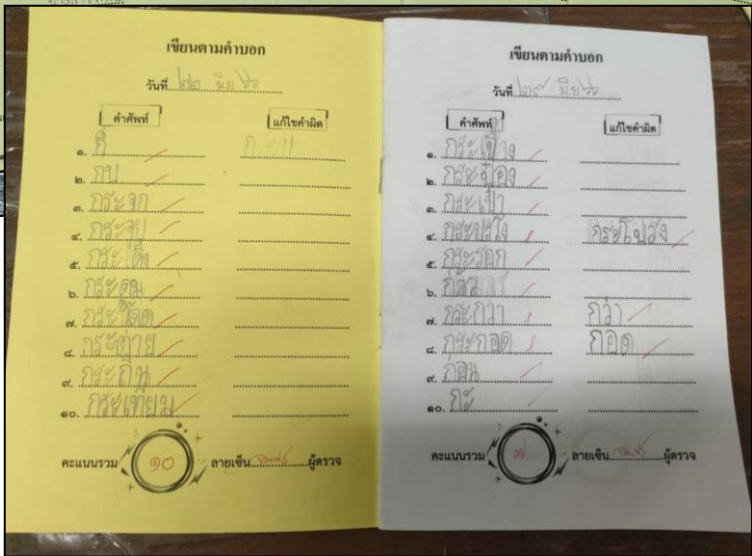 เขียนตามคำบอก
วันที่ ๒๒ มิย ๖๖
คำศัพท์ แก้ไขคำผิด
๑. ก็
๒. กบ
๓. กระจก
๔. กระจุย
๕. กระดิ่ง
๖. กระดุม
๗. กระโดด
๘. กระต่าย
๙. กระถิน
๑๐. กระเทียม
คะแนนรวม ๑๐ ลายเซ็น ผู้ตรวจ
เขียนตามคำบอก
วันที่ ๒๙ มิย ๖๖
คำศัพท์ แก้ไขคำผิด
๑.
๒. กระป๋อง
๓. กระเป๋า
๔. กระโปรง
๕. กระรอก
๖.
๗. กระกว่า กว่า
๘. กระกอด กอด
๙. ก่อน
๑๐. กะ
คะแนนรวม ๗ ลายเซ็น ผู้ตรวจ